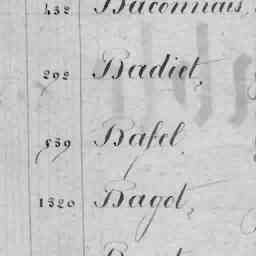 432 Baconnais,
292 Badiet,
859 Bafel,
1320 Baget,